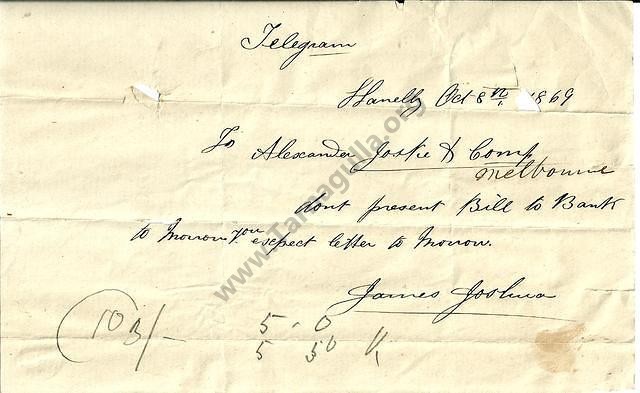 Telegram
Llanelly Oct 8th 1869
To Alexander Joske & Comp
Melbourne
dont present Bill to Bank
to Morrow you expect letter to Morrow.
James Joshua
103/-
5 - 0
5 50
www.Tarnagulla.org